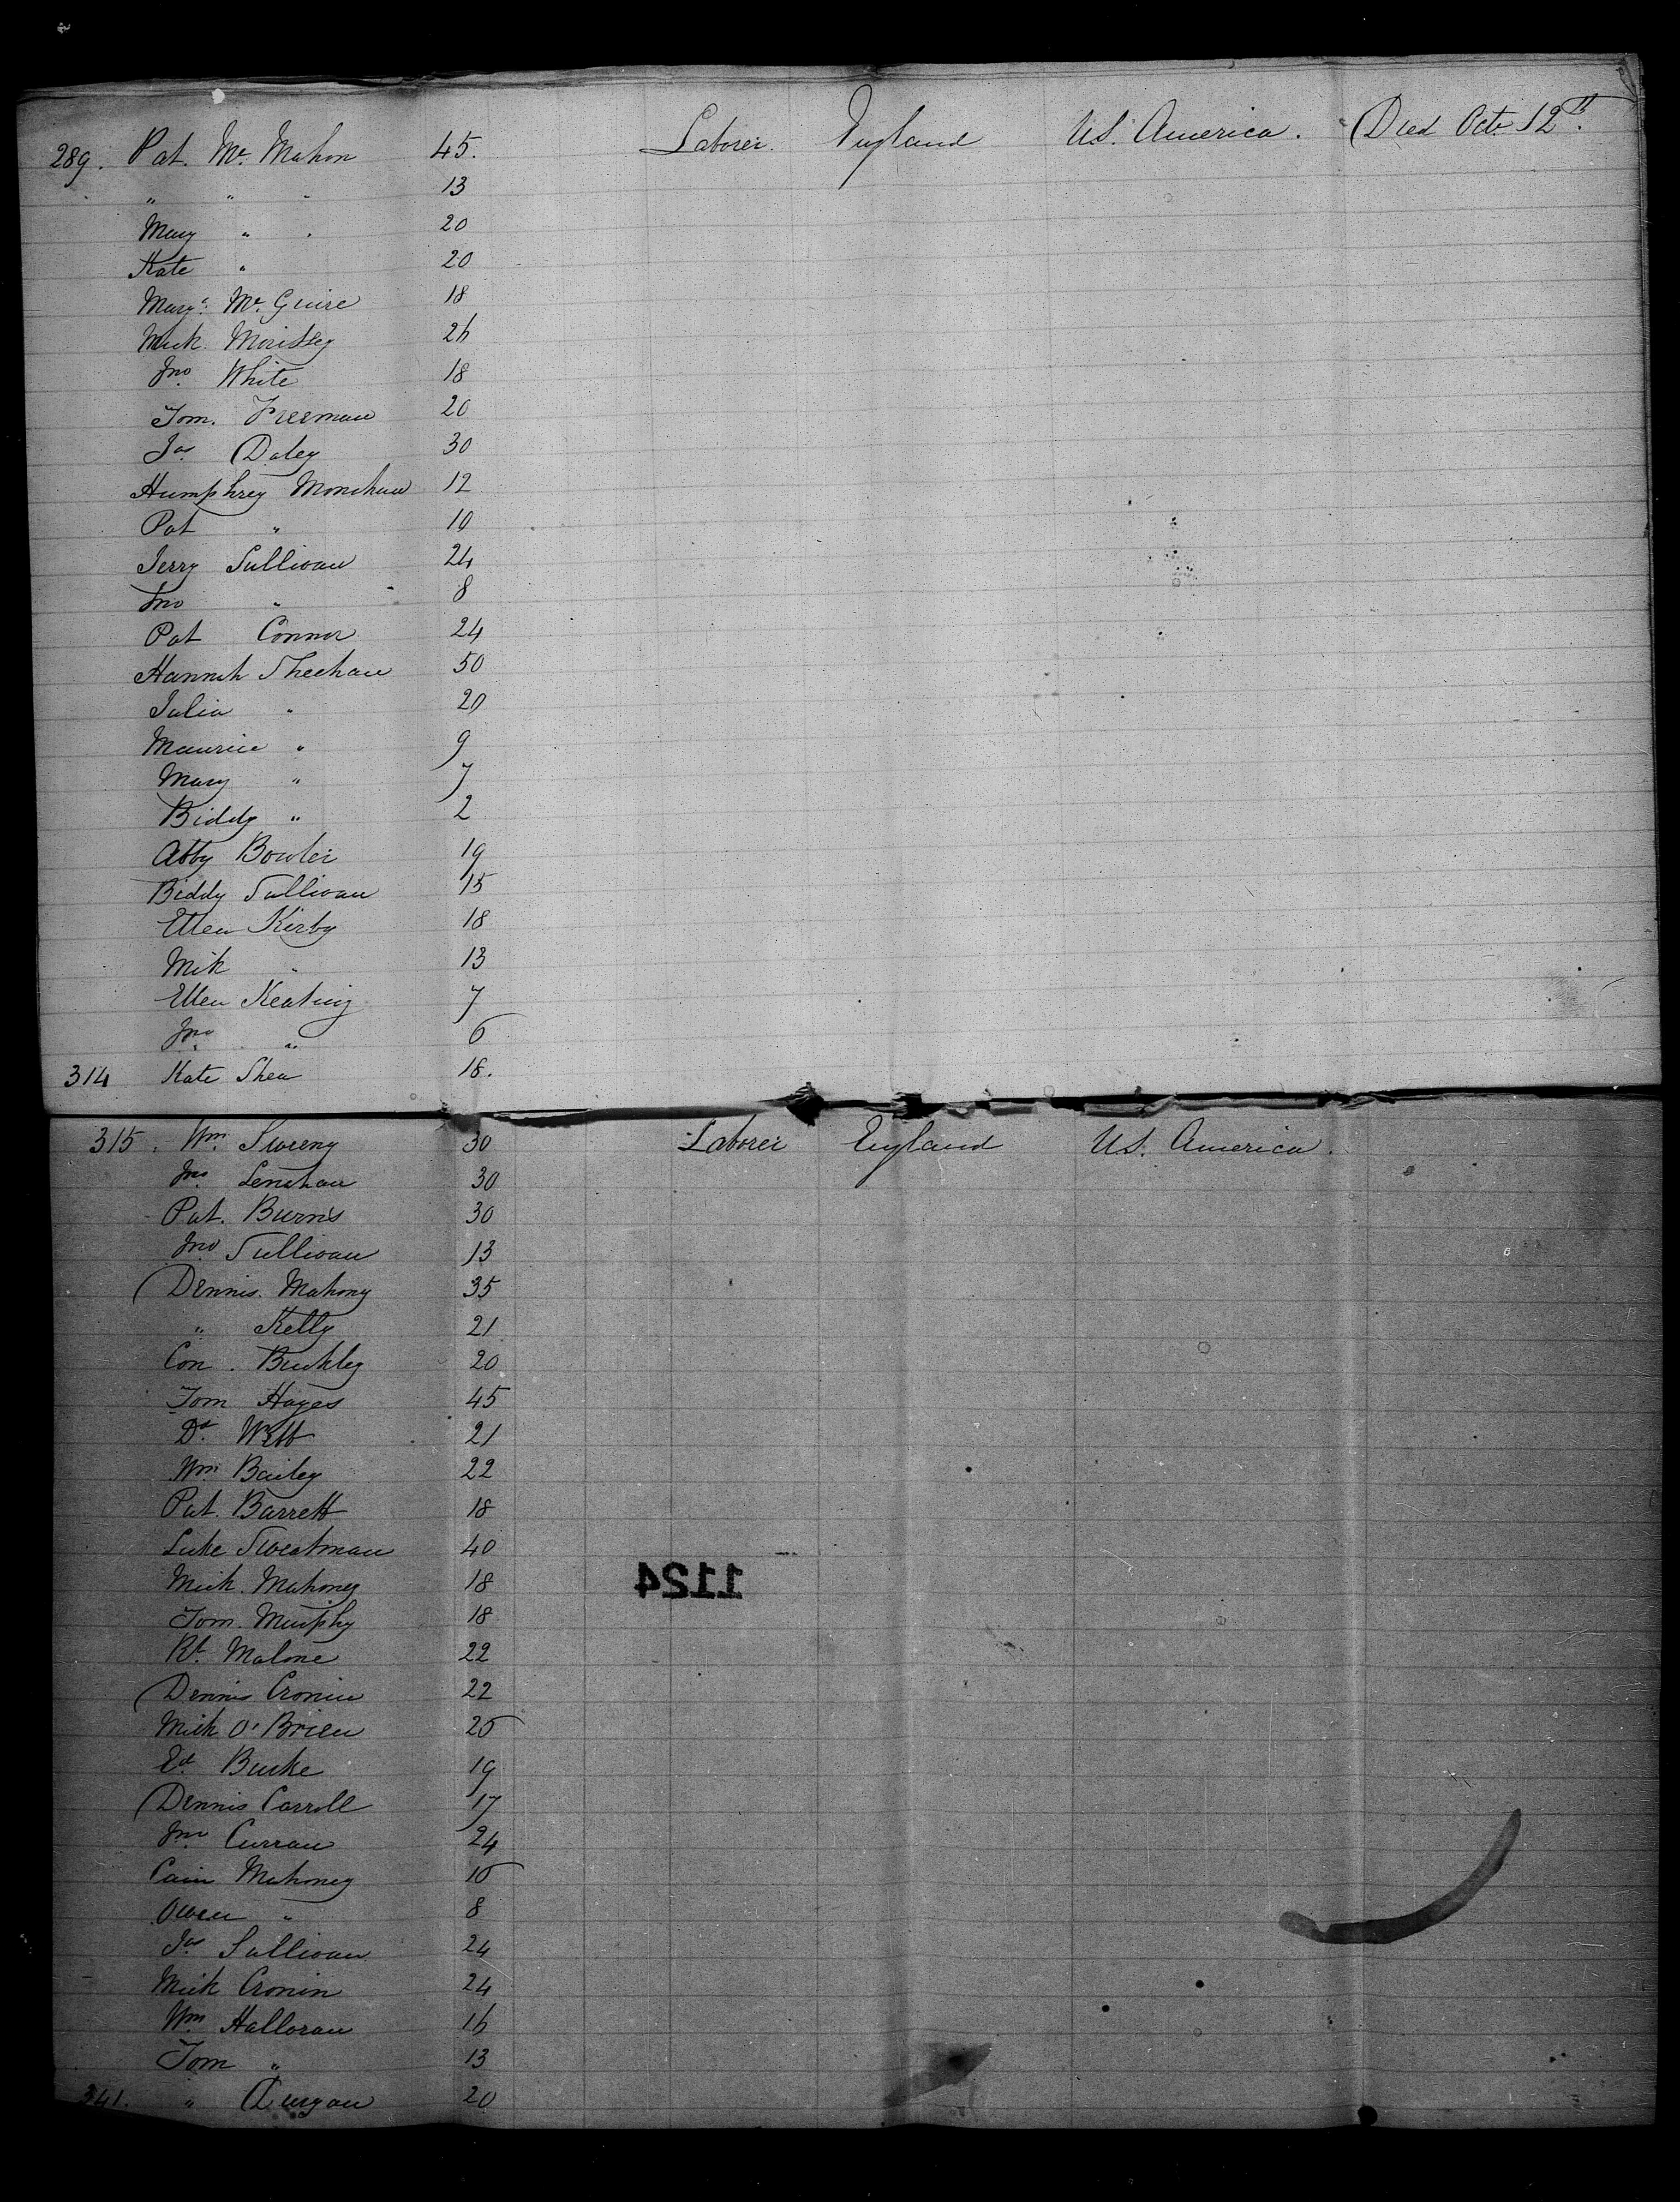 289. Pat. Mc. Mahon 45. Laborer. England U.S. America. Died Octr. 12th.
" " " 13
Mary " " 20
Kate " 20
Margt. Mc. Guire 18
Mick. Morissey 26
Jno. White 18
Tom. Freeman 20
Jas Daley 30
Humphrey Monihan 12
Pat " 10
Jerry Sullivan 24
Jno " 8
Pat Connor 24
Hannah Sheehan 50
Julia " 20
Maurice " 9
Mary " 7
Biddy " 2
Abby Bowler 19
Biddy Sullivan 15
Ellen Kirby 18
Mik " 13
Ellen Keating 7
Jno. " 6
314 Kate Shea 18.
315. Wm. Sweeny 30 Laborer England U.S. America.
Jno. Lenahan 30
Pat. Burns 30
Jno. Sullivan 13
Dennis. Mahony 35
" Kelly 21
Con. Buckley 20
Tom Hayes 45
Dd. Webb 21
Wm. Bailey 22
Pat. Barrett 18
Luke Sweatman 40
Mick. Mahoney 18
1124
Tom. Murphy 18
Rt. Malone 22
Dennis Cronin 22
Mick O'Brien 25
Ed. Burke 19
Dennis Carroll 17
Jno Curran 24
Mahoney 10
Owen " 8
Jas Sullivan 24
Mick Cronin 24
Wm Halloran 16
Tom " 13
341. " Durgan 20